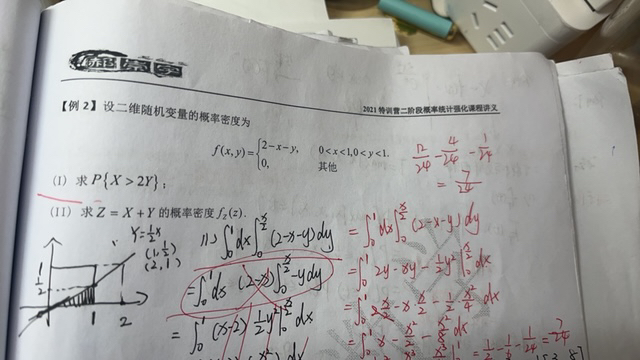 2021 特训营二阶段概率统计强化课程讲义
【例 2】设二维随机变量的概率密度为
f(x,y)={2-x-y, 0<x<1,0<y<1.
0, 其他
(I) 求 P{X>2Y};
(II) 求 Z=X+Y 的概率密度 f_Z(z).
12/24 - 4/24 - 1/24
= 7/24
Y=½x
(1,½)
(2,1)
½
1 2
(1) ∫₀¹dx∫₀^{x/2}(2-x-y)dy
=∫₀¹dx (2-x)∫₀^{x/2}-ydy
=∫₀¹(x-2)½y²|₀^{x/2}dx
=∫₀¹dx∫₀^{x/2}(2-x-y)dy
=∫₀¹ 2y-xy-½y²|₀^{x/2}dx
=∫₀¹ 2·x/2-x·x/2-½·x²/4 dx
=∫₀¹ x-x²/2-x²/8 dx
=½-1/6-1/24=7/24